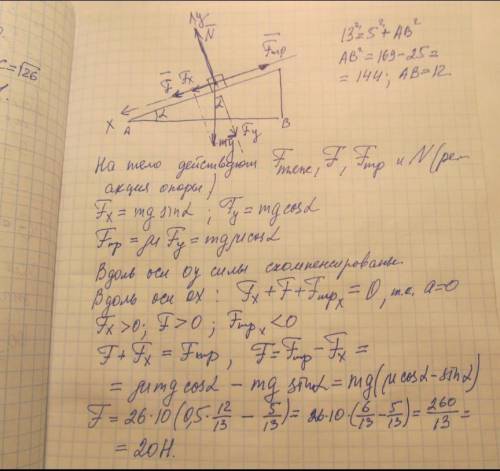 C=√26
y
N
Fтр
F
Fx
X
A
α
α
mg
Fy
B
13² = 5² + AB²
AB² = 169 – 25 =
= 144 ; AB = 12
На тело действуют Fтяж, F, Fтр и N (ре-
акция опоры)
Fx = mg sinα ; Fy = mg cosα
Fтр = μ Fy = mg μ cosα
Вдоль оси oy силы скомпенсированы.
Вдоль оси ox : Fx + F + Fтрx = 0, т.к. a=0
Fx > 0 ; F > 0 ; Fтрx < 0
F + Fx = Fтр , F = Fтр – Fx =
= μ mg cosα – mg sinα = mg (μ cosα – sinα)
F = 26·10 (0,5 · 12/13 – 5/13) = 26·10 (6/13 – 5/13) = 260/13 =
= 20Н.